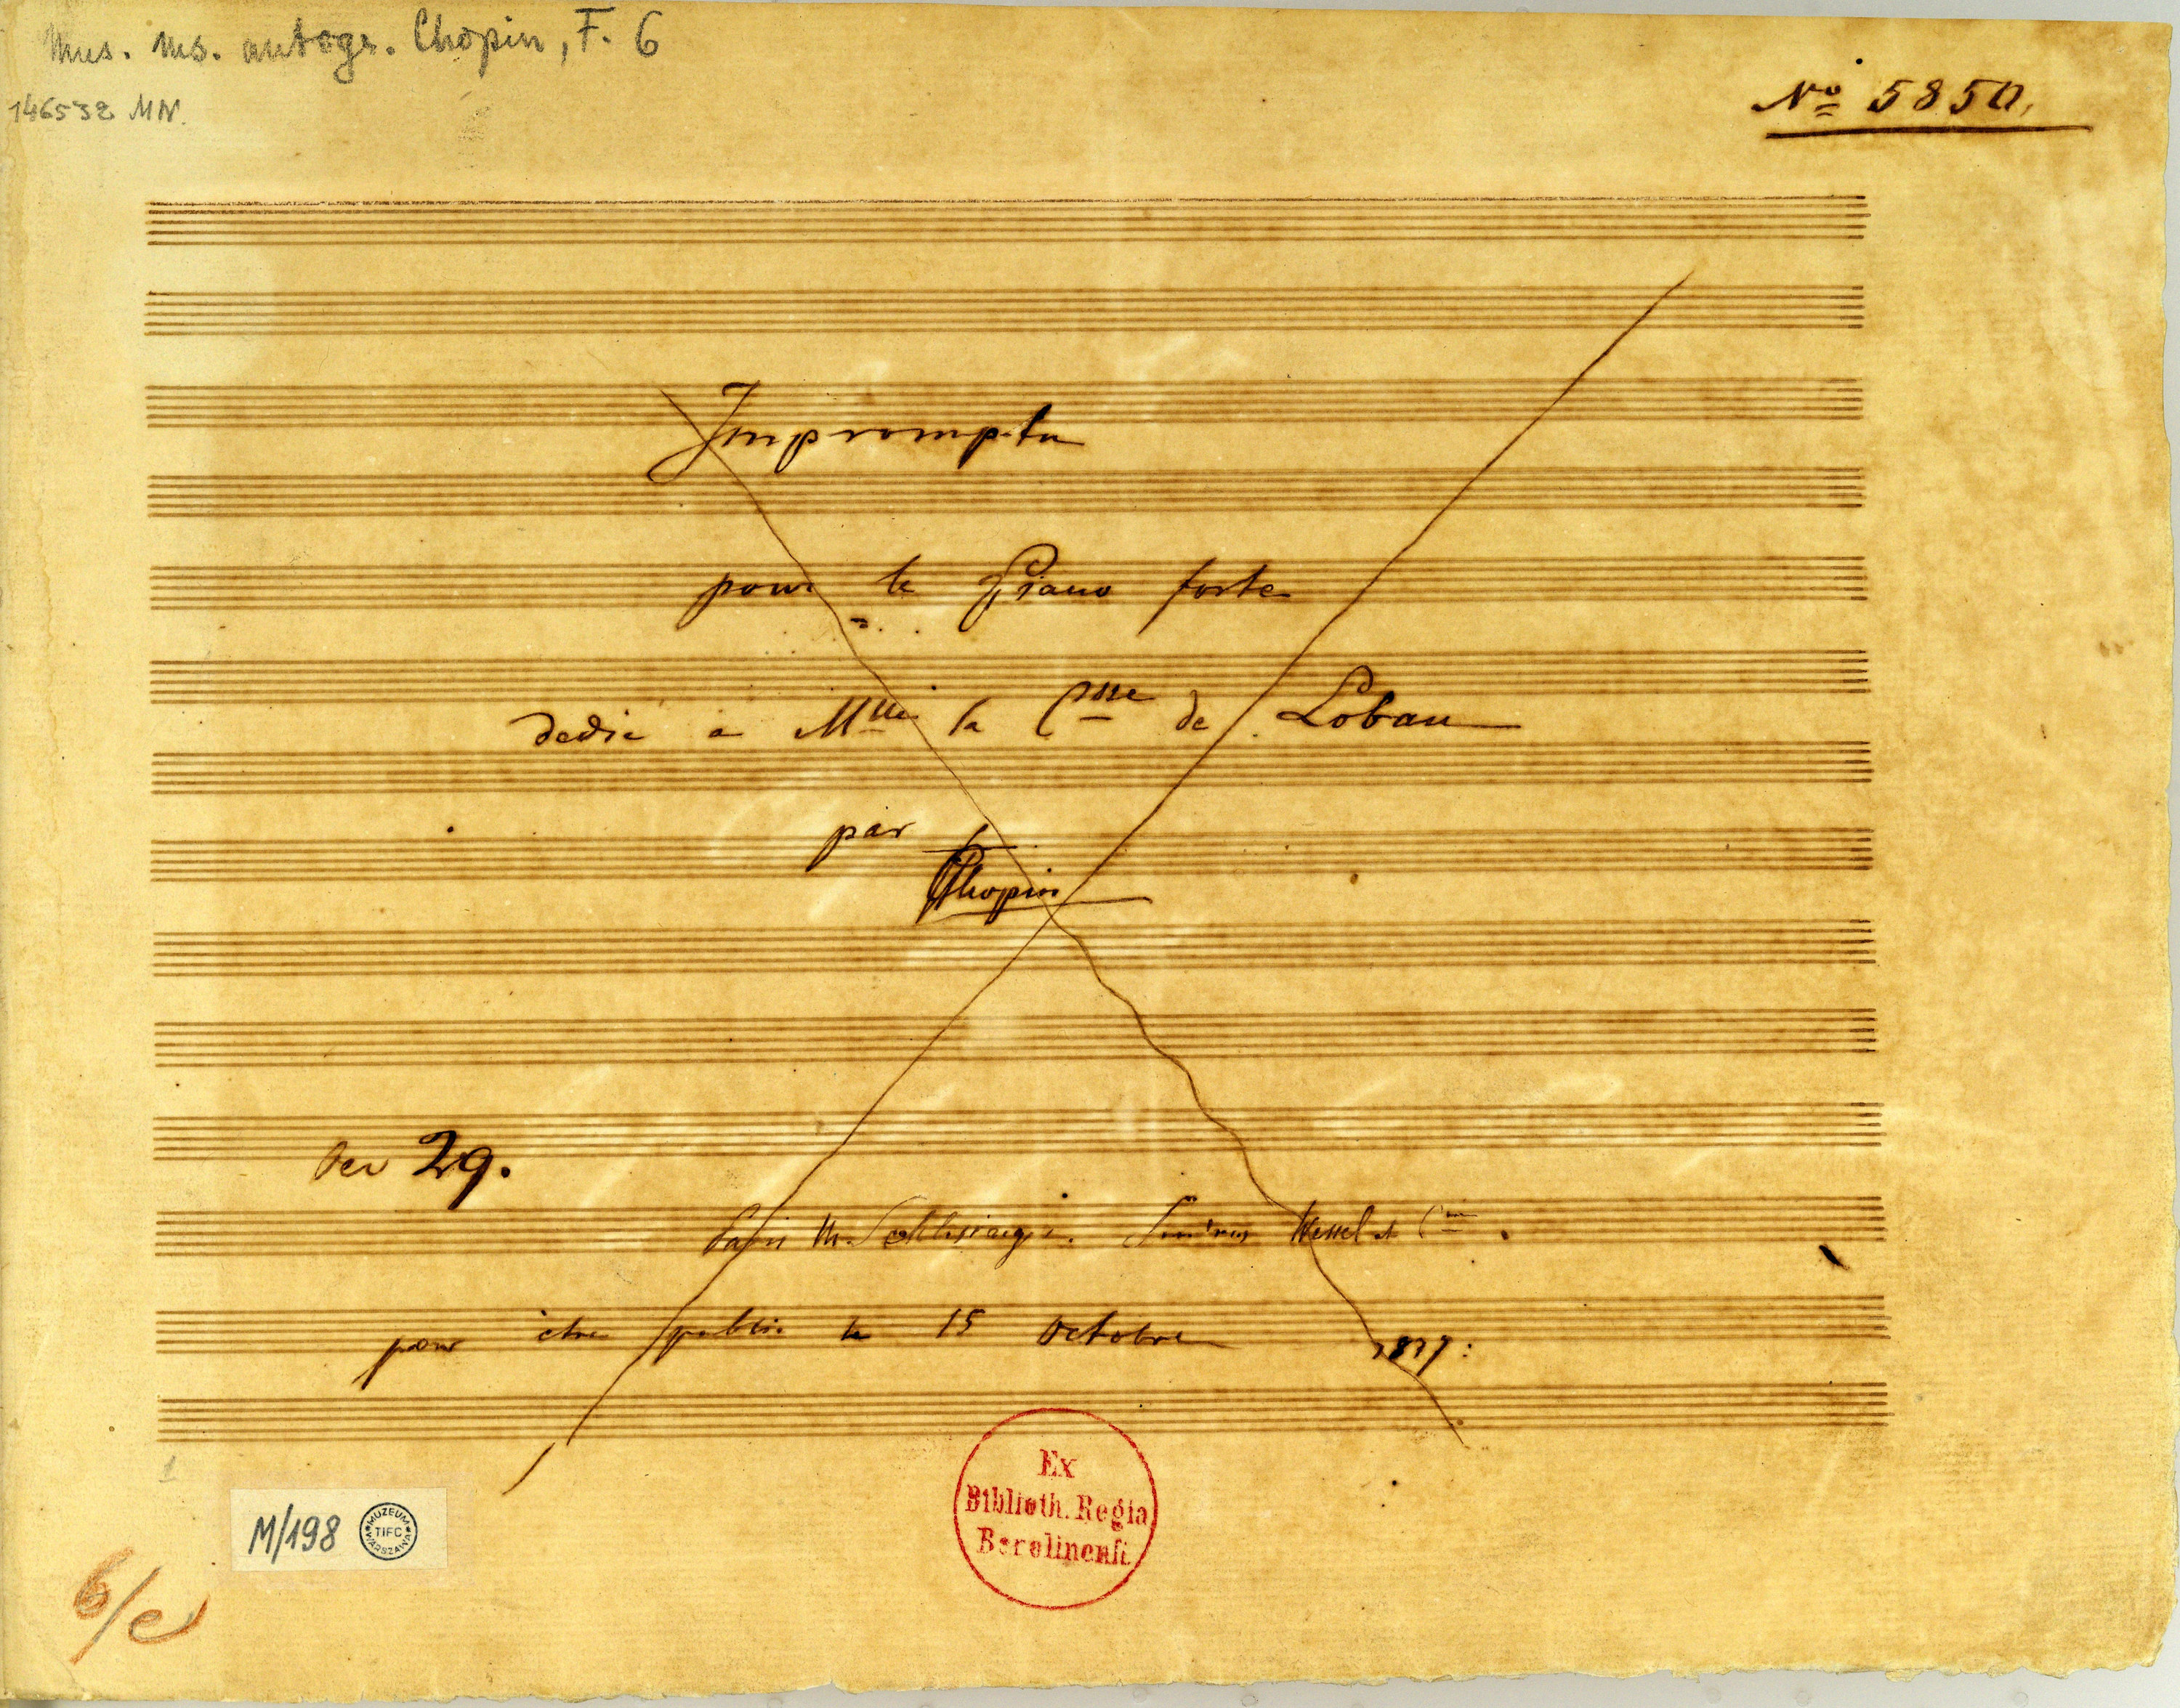 Mus. ms. autogr. Chopin, F. 6
146532 MN.
No 5850.
Impromptu
pour le Piano forte
dedié a Mlle la Csse de Lobau
par F
Chopin
Oev 29.
Paris M. Schlesinger. Londres Wessel et Cie.
pour être publié le 15 Octobre 1837:
1
M/198
MUZEUM
TIFC
WARSZAWA
Ex
Biblioth. Regia
Berolinensi.